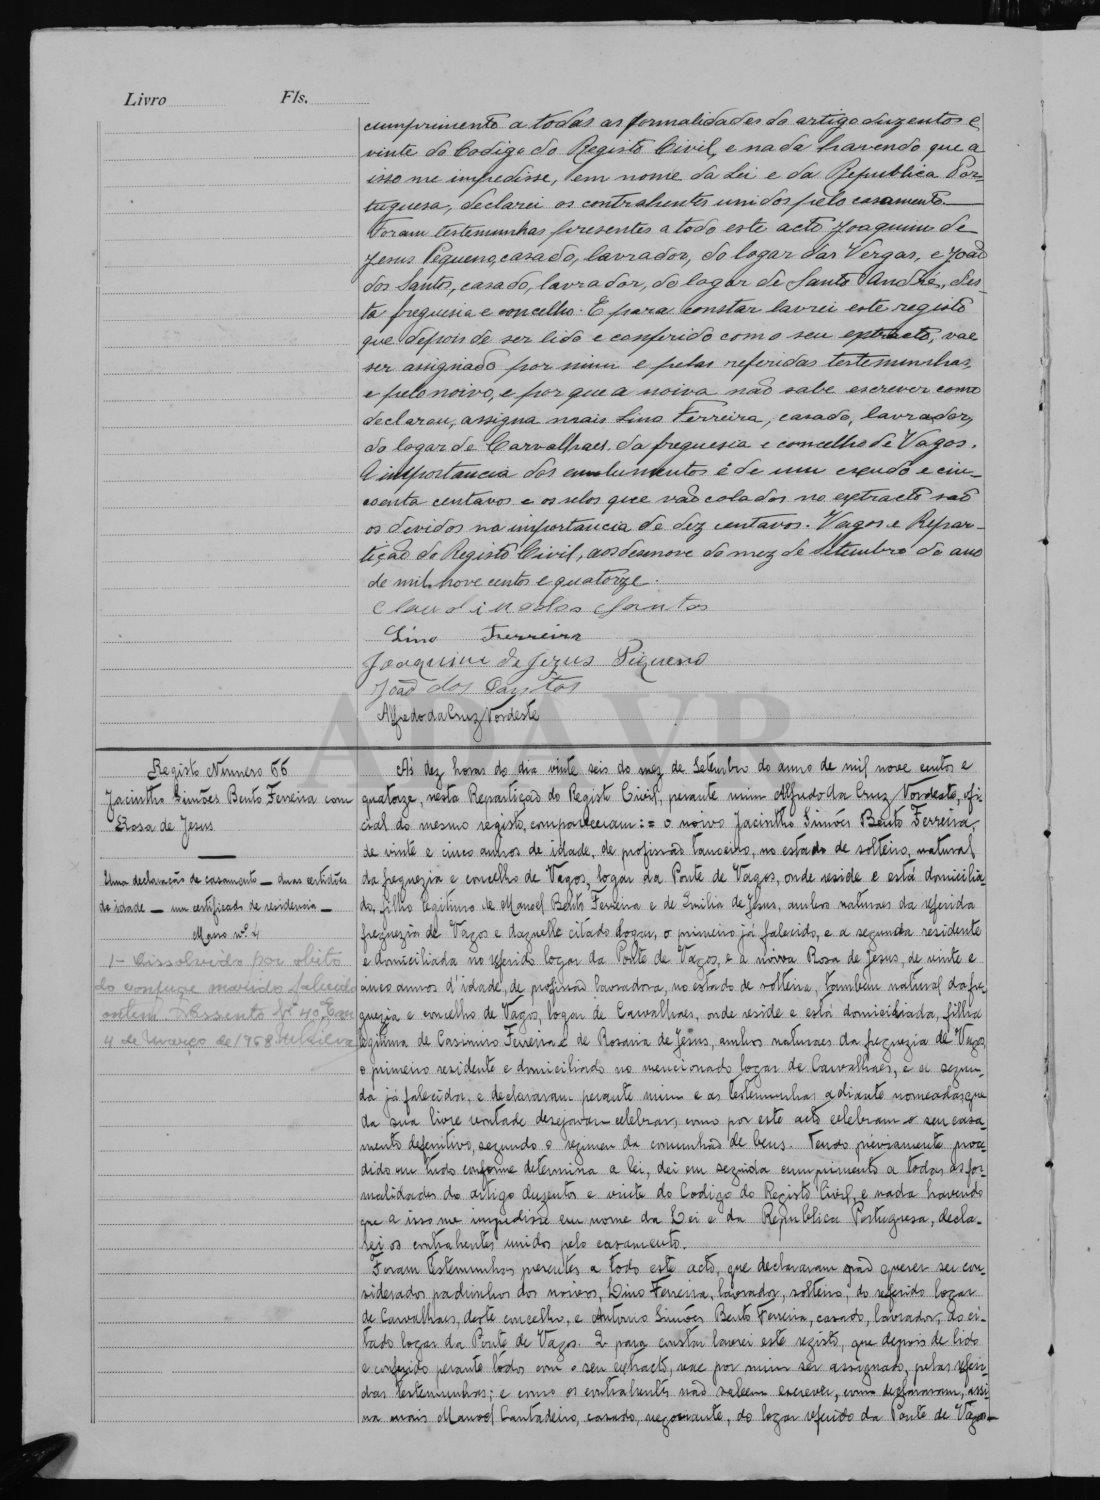 Livro Fls.
cumprimento a todas as formalidades do artigo duzentos e
vinte do Codigo do Registo Civil, e nada havendo que a
isso me impedisse, em nome da Lei e da Republica Por-
tuguesa, declarei os contrahentes unidos pelo casamento.
Foram testemunhas presentes a todo este acto Joaquim de
Jesus Pequeno, casado, lavrador, do logar das Vergas, e João
dos Santos, casado, lavrador, do logar de Santo André, des-
ta freguesia e concelho. E para constar lavrei este registo
que depois de ser lido e conferido com o seu extracto, vae
ser assignado por mim e pelas referidas testemunhas,
e pelo noivo, e por que a noiva não sabe escrever como
declarou, assigna mais Lino Ferreira, casado, lavrador,
do logar de Carvalhaes, da freguesia e concelho de Vagos.
A importancia dos emolumentos é de um escudo e cin-
coenta centavos e os selos que vão colados no extracto são
os devidos na importancia de dez centavos. Vagos e Repar-
tição do Registo Civil, aos desenove do mez de Setembro do ano
de mil nove centos e quatorze.
Claudino dos Santos
Lino Ferreira
Joaquim de Jezus Piqueno
João dos Santos
Alfredo da Cruz Vordeste
ADAVR
Registo Numero 66
Jacintho Simões Bento Ferreira com
Rosa de Jesus
Uma declaração de casamento — duas certidões
de idade — um certificado de residencia —
Maço nº 4
1- Dissolvido por obito
do conjuge marido falecido
ontem. Assento Nº 40. Em
4 de Março de 1968
As dez horas do dia vinte seis do mez de Setembro do anno de mil nove centos e
quatorze, nesta Repartição do Registo Civil, perante mim Alfredo da Cruz Vordeste, ofi-
cial do mesmo registo, compareceram:= o noivo Jacintho Simões Bento Ferreira,
de vinte e cinco annos de idade, de profissão tanoeiro, no estado de solteiro, natural
da freguezia e concelho de Vagos, logar da Ponte de Vagos, onde reside e está domicilia-
do, filho legitimo de Manoel Bento Ferreira e de Emilia de Jesus, ambos naturaes da referida
freguezia de Vagos e daquelle citado logar, o primeiro já falecido, e a segunda residente
e domiciliada no referido logar da Ponte de Vagos, e a noiva Rosa de Jesus, de vinte e
cinco annos d'idade, de profissão lavradora, no estado de solteira, tambem natural da fre-
guezia e concelho de Vagos, logar de Carvalhaes, onde reside e está domiciliada, filha
legitima de Casimiro Ferreira e de Rosaria de Jesus, ambos naturaes da freguezia de Vagos,
o primeiro residente e domiciliado no mencionado logar de Carvalhaes, e a segun-
da já falecida, e declararam perante mim e as testemunhas adiante nomeadas, que
da sua livre vontade desejavam celebrar, como por este acto celebram o seu casa-
mento definitivo, segundo o regimen da comunhão de bens. Tendo préviamente proce-
dido em tudo conforme determina a lei, dei em seguida cumprimento a todas as for-
malidades do artigo duzentos e vinte do Codigo do Registo Civil, e nada havendo
que a isso me impedisse em nome da Lei e da Republica Portuguesa, decla-
rei os contrahentes unidos pelo casamento.
Foram testemunhas presentes a todo este acto, que declararam não querer ser con-
siderados padrinhos dos noivos, Lino Ferreira, lavrador, solteiro, do referido logar
de Carvalhaes, deste concelho, e Antonio Simões Bento Ferreira, casado, lavrador, do ci-
tado logar da Ponte de Vagos. E para constar lavrei este registo, que depois de lido
e conferido perante todos com o seu extracto, vae por mim ser assignado, pelas referi-
das testemunhas; e como os contrahentes não sabem escrever, como declararam, assi-
na mais Manoel Cantadeiro, casado, negociante, do logar referido da Ponte de Vagos—